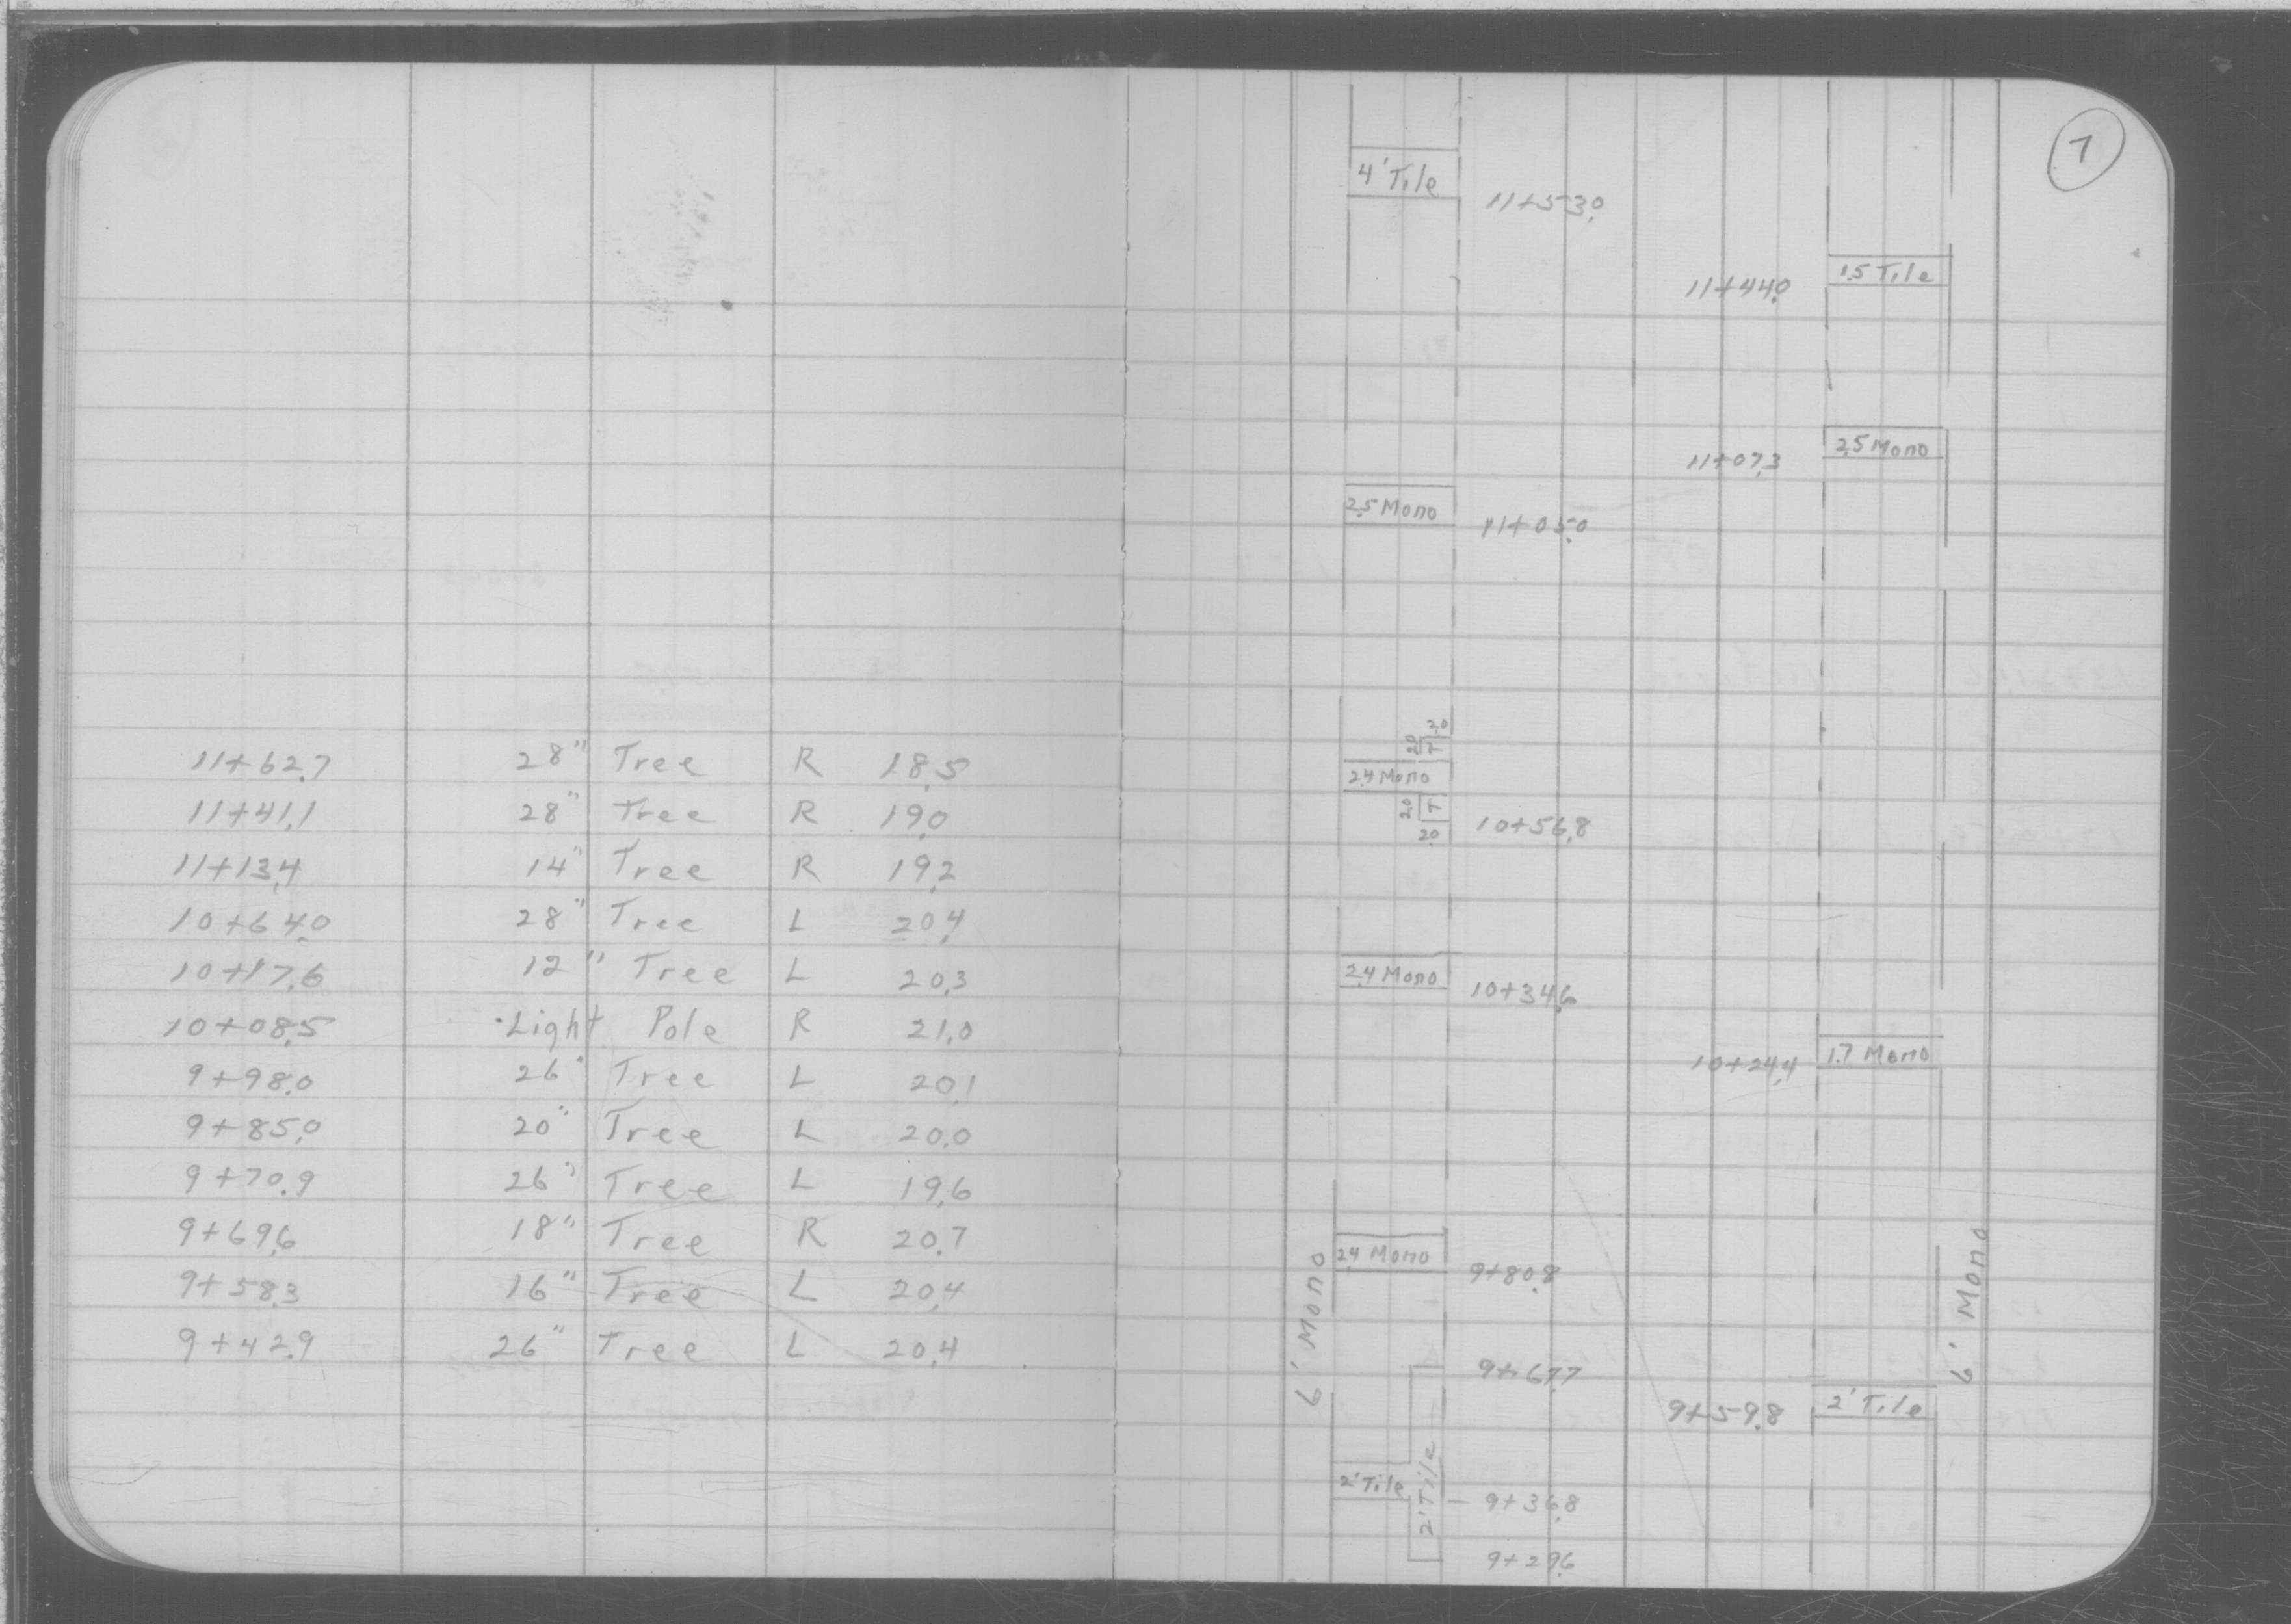 11+62.7 28" Tree R 18.5
11+41.1 28" Tree R 19.0
11+13.4 14" Tree R 19.2
10+64.0 28" Tree L 20.4
10+17.6 12" Tree L 20.3
10+08.5 Light Pole R 21.0
9+98.0 26" Tree L 20.1
9+85.0 20" Tree L 20.0
9+70.9 26" Tree L 19.6
9+69.6 18" Tree R 20.7
9+58.3 16" Tree L 20.4
9+42.9 26" Tree L 20.4
7
4' Tile 11+53.0
11+44.0 1.5 Tile
11+07.3 2.5 Mono
2.5 Mono 11+05.0
2.0
2.0 T
2.4 Mono
2.0 T
2.0 10+56.8
2.4 Mono 10+34.6
10+24.4 1.7 Mono
2.4 Mono 9+80.8
6' Mono
6' Mono
9+67.7
9+59.8 2' Tile
2' Tile 2' Tile 9+36.8
9+29.6